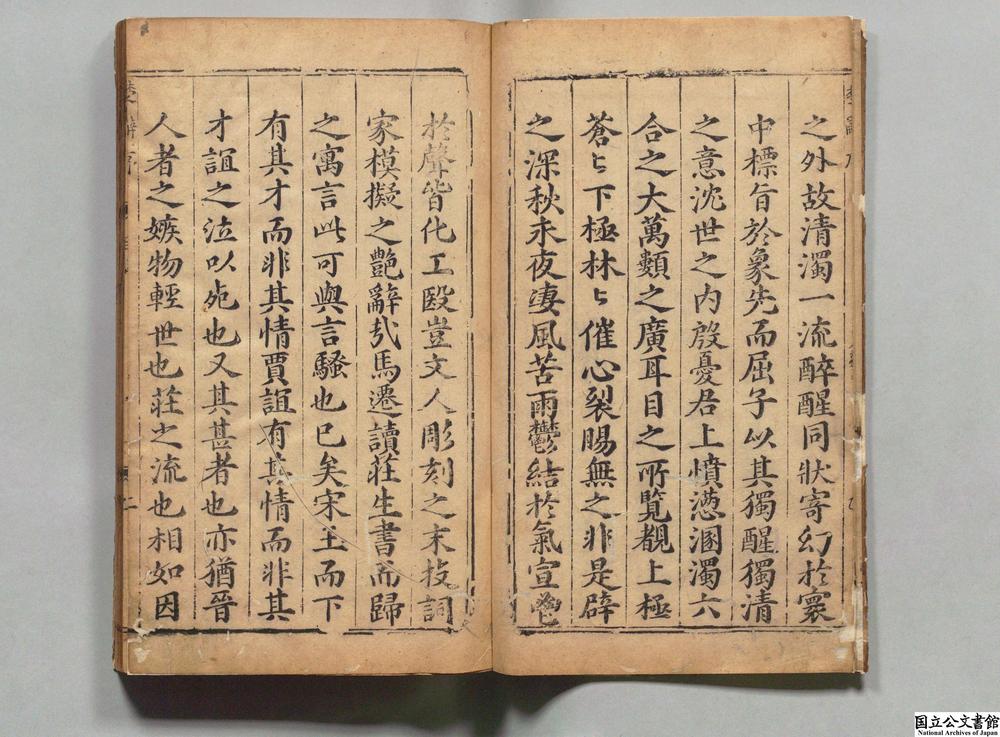 之外故清濁一流醉醒同狀寄幻於寰
中標旨於象先而屈子以其獨醒獨清
之意沈世之内殷憂君上憤懣溷濁六
合之大萬類之廣耳目之所覽覩上極
蒼〻下極林〻催心裂腸無之非是辟
之深秋永夜凄風苦雨鬱結於氣宣
於聲皆化工殹豈文人彫刻之末技詞
家模擬之艷辭㢤馬遷讀莊生書而歸
之寓言此可與言騷也已矣宋玉而下
有其才而非其情賈誼有其情而非其
才誼之泣以死也又其甚者也亦猶晉
人者之嫉物輕世也莊之流也相如因
楚辭序
二
国立公文書館
National Archives of Japan